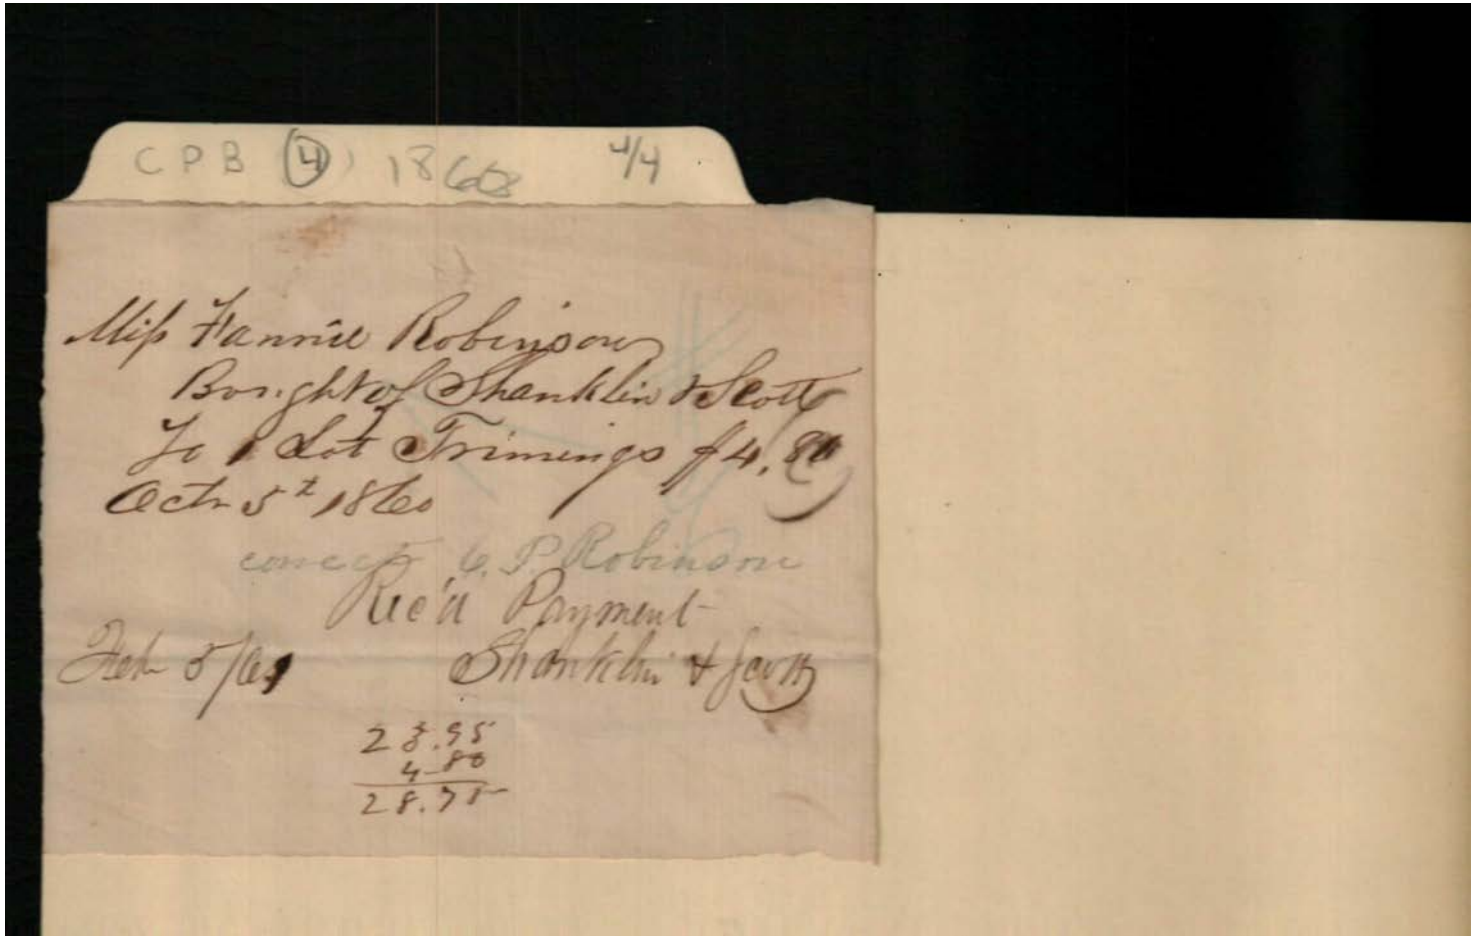 CPB (4) 1860 4/4
Miss Fannie Robinson
Bought of Shanklin & Scott
To 1 Lot Trimings $4.80
Octr 5t 1860
C. P. Robinson
Rec'd Payment
Feb 5/61 Shanklin & Scott
23.95
4.80
28.75